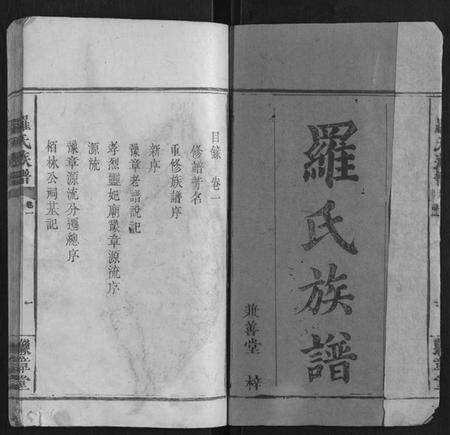 羅氏族譜
兼善堂 梓
目錄 卷一
修譜芳名
重修族譜序
新序
豫章老譜說記
孝烈靈妃廟豫章源流序
源流
豫章源流分遷總序
栢林公祠墓記
羅氏族譜
卷一
一
豫章堂